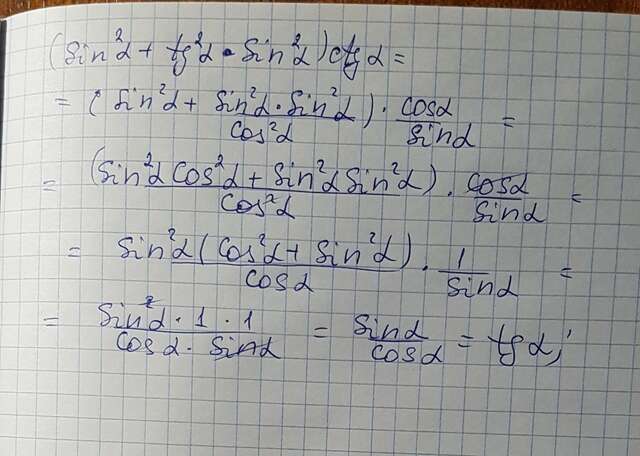 (sin²α + tg²α · sin²α) ctg α =
= (sin²α + sin²α · sin²α / cos²α) · cosα / sinα =
= (sin²α cos²α + sin²α sin²α) / cos²α · cosα / sinα =
= sin²α (cos²α + sin²α) / cosα · 1 / sinα =
= sin²α · 1 · 1 / cosα · sinα = sinα / cosα = tg α;